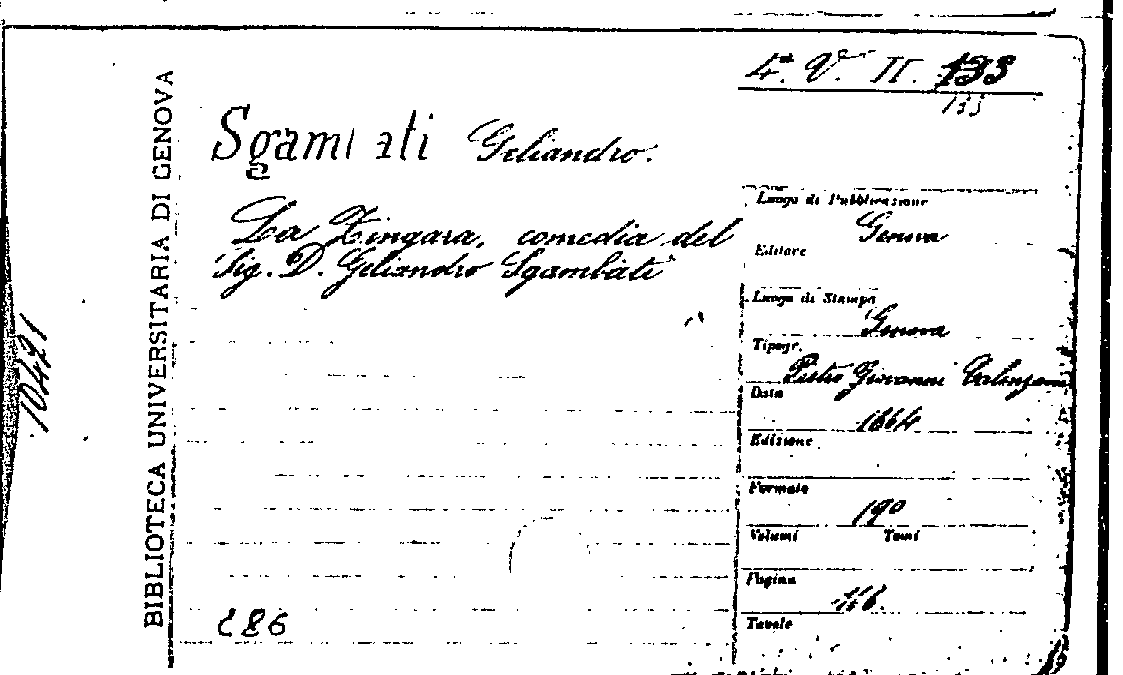 4.ª V.ª II. 133
133
Sgambati Geliandro.
La Zingara, comedia del
Sig. D. Geliandro Sgambati
Luogo di Pubblicazione
Genova
Editore
Luogo di Stampa
Genova
Tipogr.
Pietro Giovanni Calenzani
Data
1664
Edizione
Formato
Volumi Tomi
Pagine
116.
Tavole
C86
BIBLIOTECA UNIVERSITARIA DI GENOVA
10421